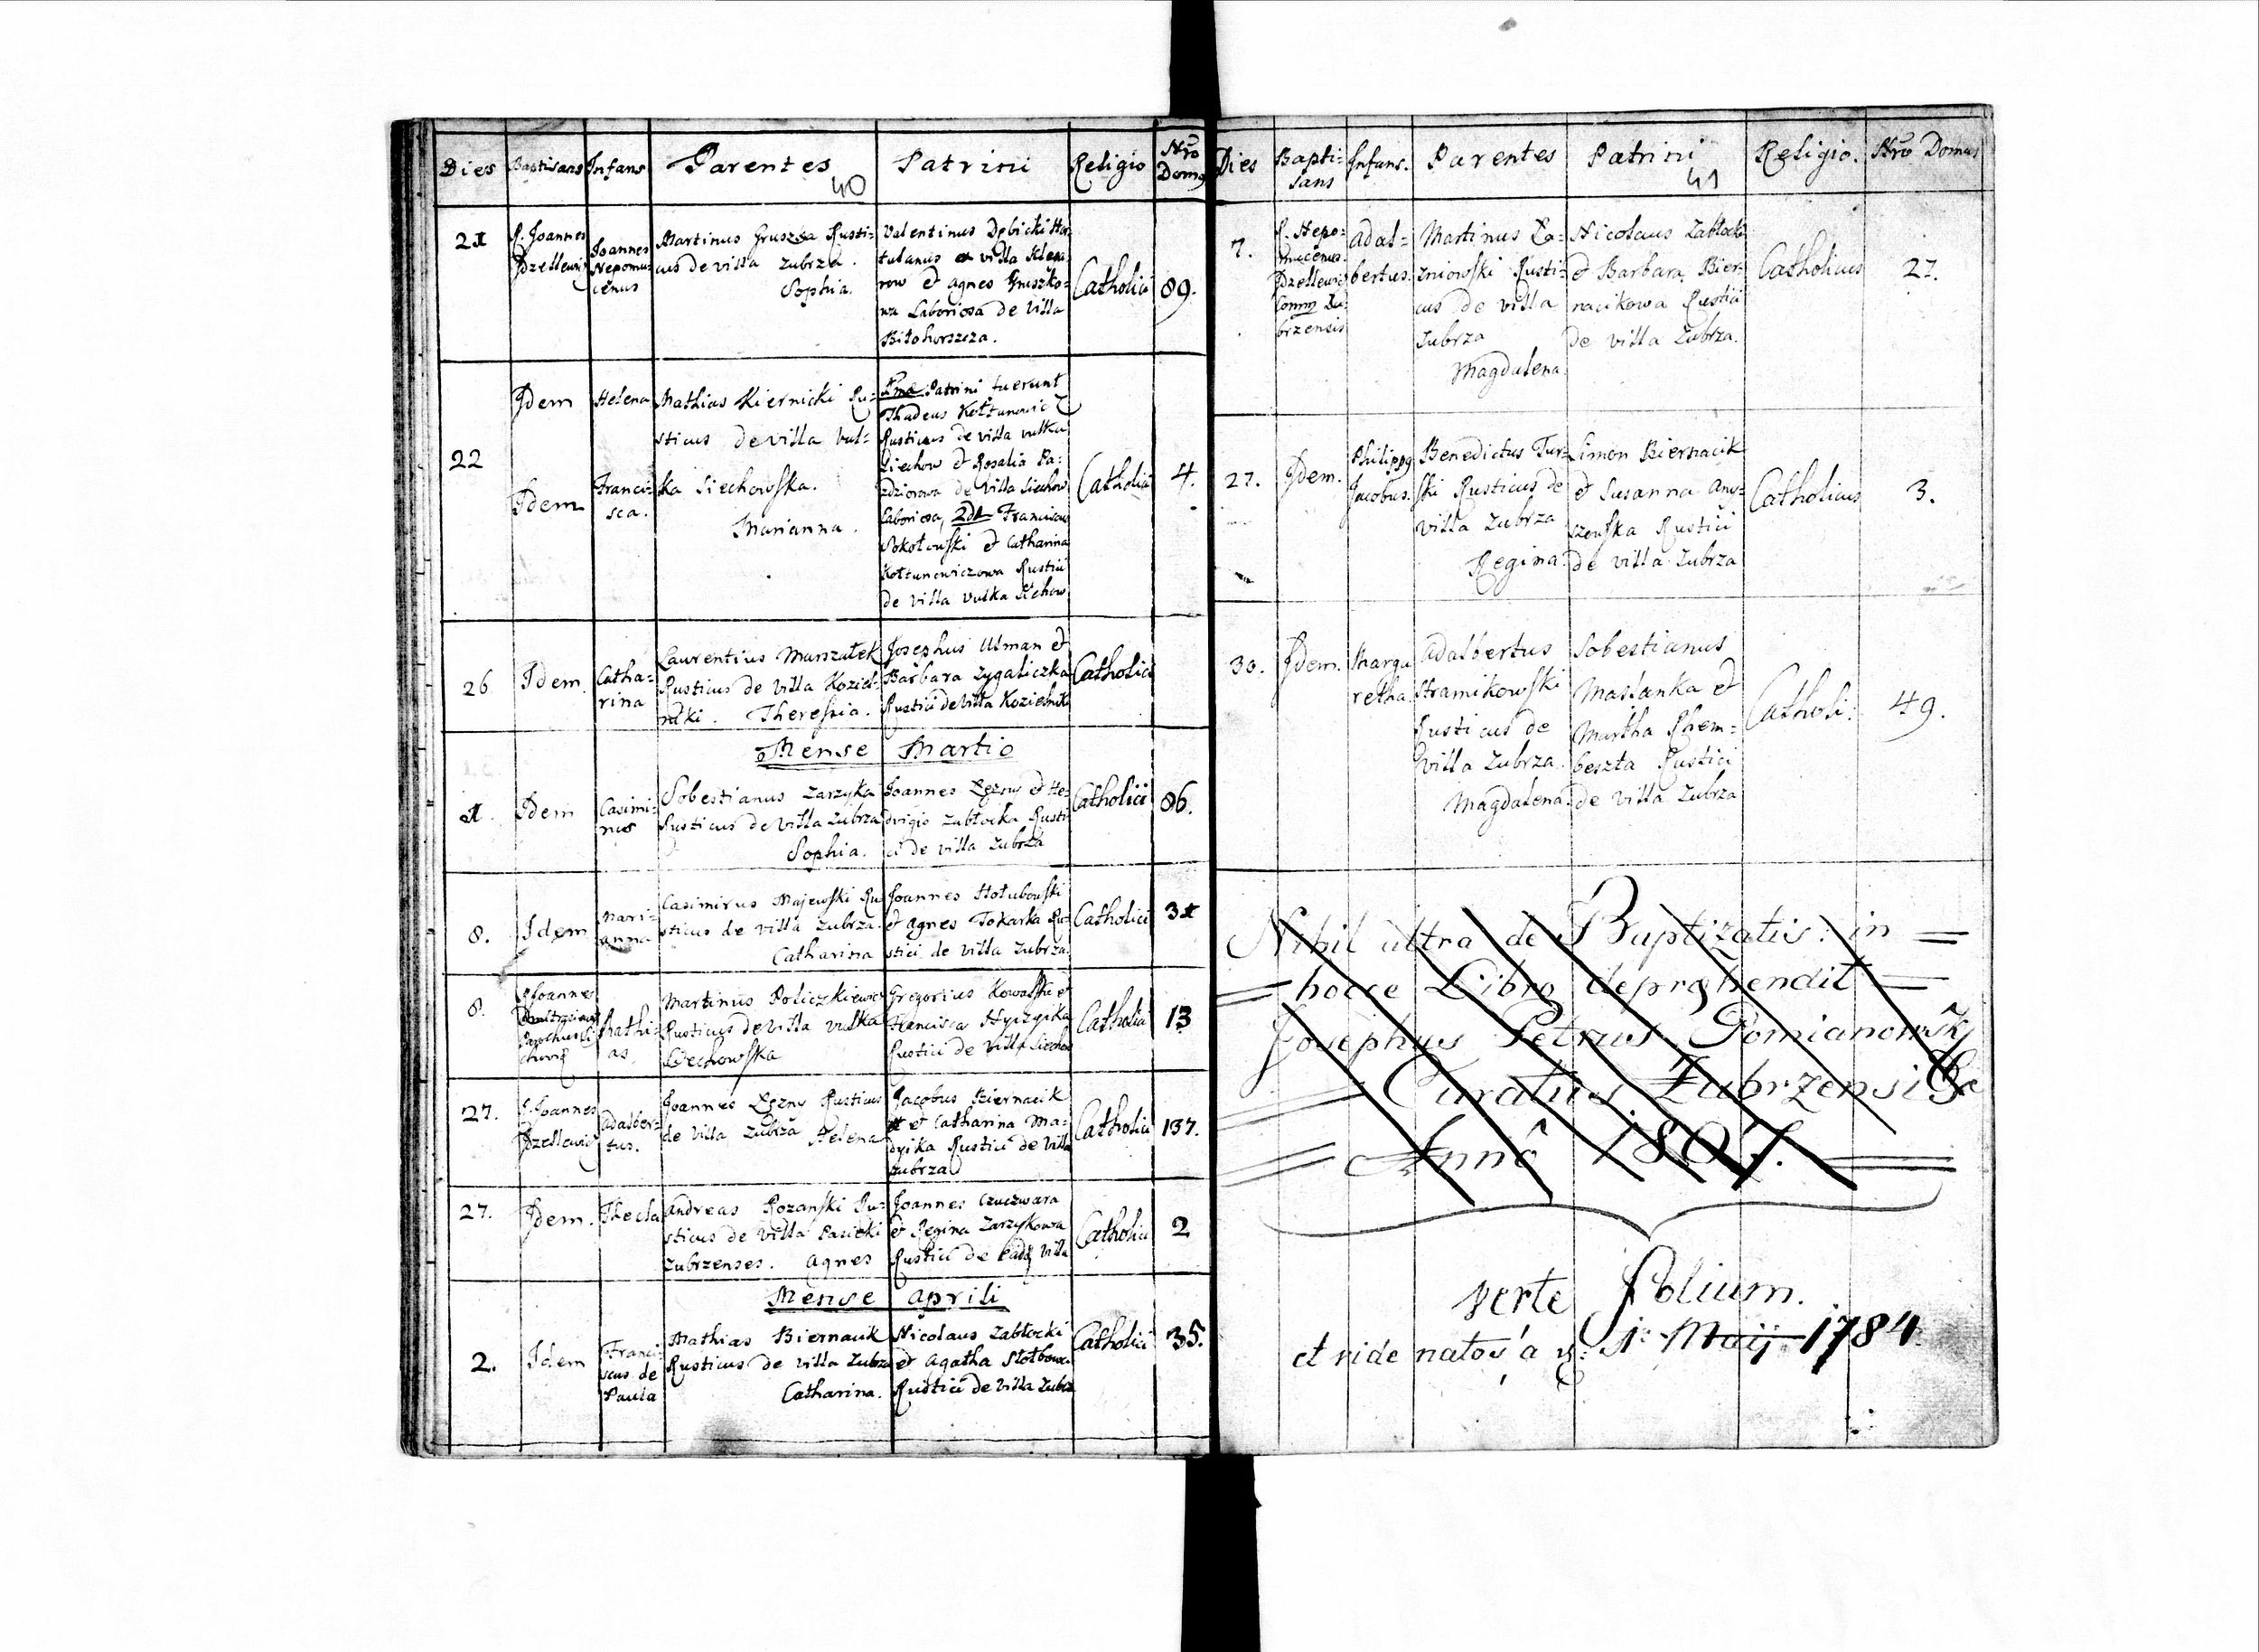 Dies Baptisans Infans Parentes Patrini Religio Nro Domq
40
21
P. Joannes
Dzellewicz
Joannes
Nepomu=
cenus
Martinus Gruszka Rusti=
cus de villa Zubrza.
Sophia.
Valentinus Dębicki Hor
tulanus villa Klepa
row et Agnes Gruszko=
wa Laboriosa de Villa
Biłohorszcza.
Catholici
89.
22
Idem
Helena
Idem
Franci=
sca.
Mathias Kiernicki Ru=
sticus de villa Vul=
ka Siechowska.
Marianna.
1mæ Patrini fuerunt
Thadeus Kołtunowicz
Rusticus de villa vulka
Siechow et Rosalia Pa=
zdziorowa de Villa Siechow
Laboriosa, 2dæ Franciscus
Sokołowski et Catharina
Kołtunowiczowa Rustici
de villa Vulka Siechow
Catholici
4.
26
Idem.
Catha=
rina
Laurentius Marszałek
Rusticus de Villa Koziel=
niki. Theresia.
Josephus Ulman et
Barbara Zygaliczka
Rustici de Villa Kozielniki
Catholici
Mense Martio
1.
Idem
Casimi=
rus
Sobestianus Zarzyka
Rusticus de Villa Zubrza
Sophia.
Joannes Rężny et He=
dvigio Zabłocka Rusti
ci de villa Zubrza
Catholici
86.
8.
Idem
Mari=
anna
Casimirus Majewski Ru
sticus de villa Zubrza.
Catharina
Joannes Hołubowski
et Agnes Tokarka Ru=
stici de villa Zubrza.
Catholici
31
8.
P Joannes
Parochus Si
chovię
Mathi=
as
Martinus Policzkiewicz
Rusticus de villa vulka
Siechowska
Gregorius Kowalski et
Francisca
Rustici de Villa Siechow
Catholici
13
27.
P. Joannes
Dzellewicz
Adalber=
tus.
Joannes Rężny Rusticus
de Villa Zubrza Helena
Jacobus Biernacik
et Catharina Ma=
dyika Rustici de Villa
Zubrza
Catholici
137.
27.
Idem.
Thecla
Andreas Rozanski Ru=
sticus de Villa Pasieki
Zubrzenses. Agnes
Joannes Czuczwara
et Regina Zarzykowa
Rustici de eadę Villa
Catholici
2
Mense Aprili
2.
Idem
Franci=
scus de
Paula
Mathias Biernacik
Rusticus de Villa Zubrza
Catharina.
Nicolaus Zabłocki
et Agatha Słotbowa
Rustici de Villa Zubrza
Catholici
35.
Dies Bapti=
sans Infans. Parentes Patrini Religio. Nro Domus
41
7.
P. Nepo=
mucenus
Dzellewicz
Comm Zu=
brzensis
Adal=
bertus.
Martinus Ro=
zniowski Rusti=
cus de villa
Zubrza
Magdalena
Nicolaus Zabłocki
et Barbara Bier=
nacikowa Rustici
de villa Zubrza.
Catholicus
27.
27.
Idem.
Philippq
Jacobus.
Benedictus Tur=
ski Rusticus de
villa Zubrza
Regina.
Simon Biernacik
et Susanna Any=
szewska Rustici
de villa Zubrza
Catholicus
3.
30.
Idem.
Marga
retha.
Adalbertus
Stramikowski
Rusticus de
villa Zubrza.
Magdalena.
Sobestianus
Maslanka et
Martha Rhem=
beszta Rustici
de villa Zubrza
Catholi:
49.
Nihil ultra de Baptizatis: in =
= hocce Libro deprehendit =
Josephus Petrus Pomianowski
= Curatus Zubrzensis
= Annô 1807. =
verte Folium.
et vide natos a 1: Maij 1784.